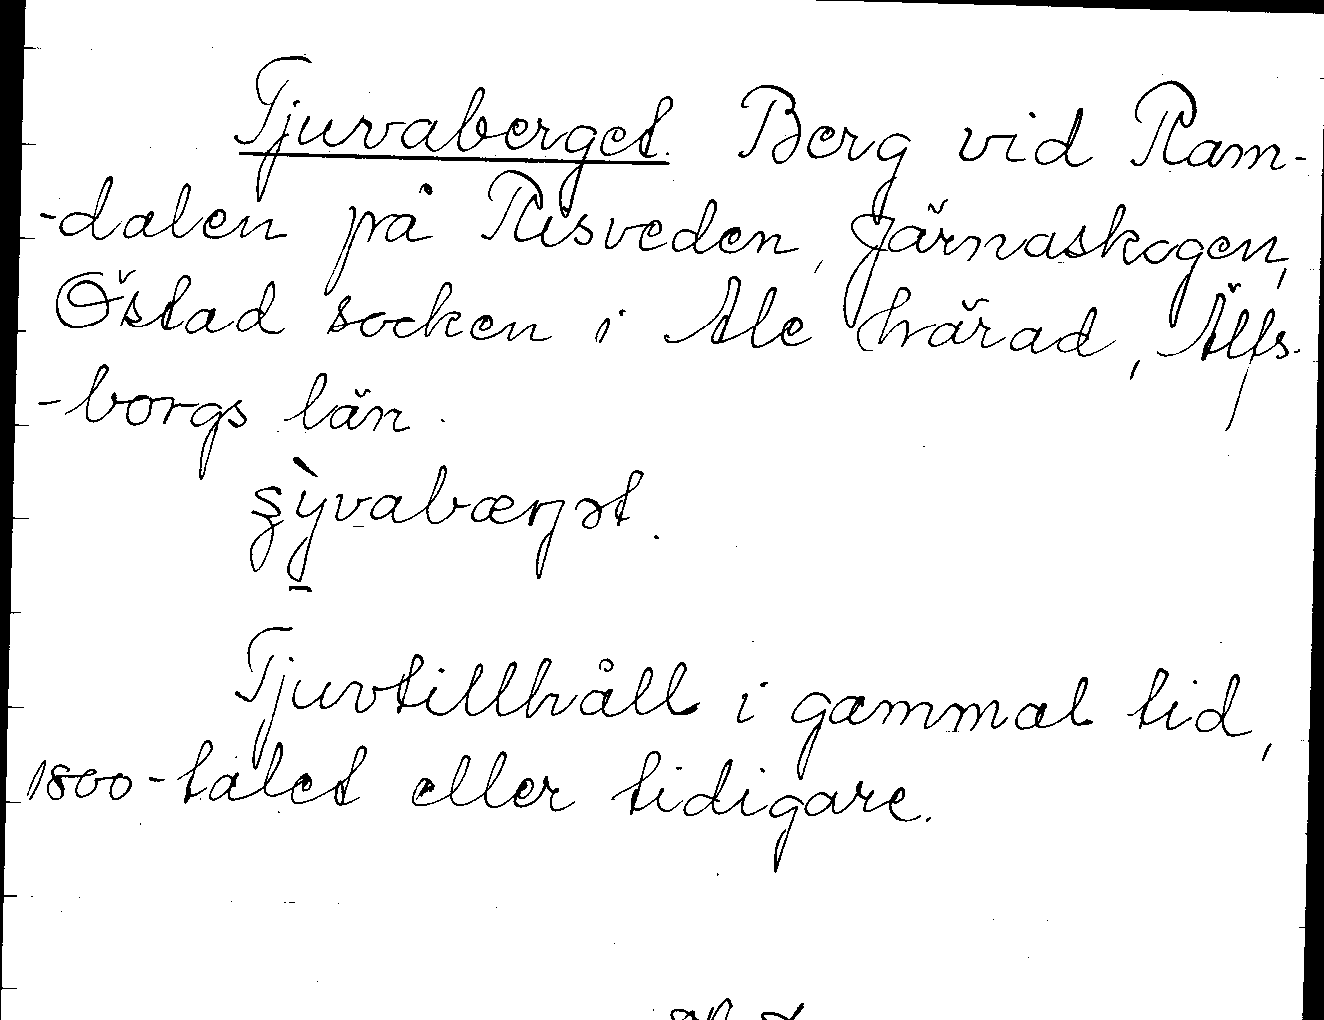 Tjuvaberget. Berg vid Ram-
-dalen på Risveden, Järnaskogen,
Östad socken i Ale härad, Älfs-
-borgs län.
Tjuvtillhåll i gammal tid,
1800-talet eller tidigare.